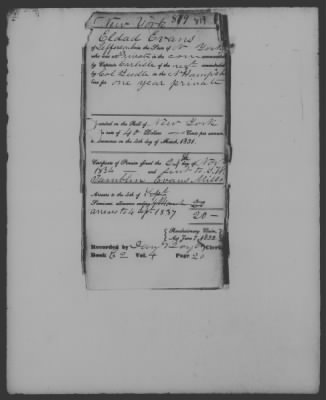 New York
Eldad Evans
of Jefferson in the State of N York
who was a Private in the com commanded
by Captain Carlisle of the regt commanded
by Col Bedle in the N Hamps
line for one year private
Inscribed on the Roll of New York
at the rate of 40 Dollars Cents per annum
to commence on the 4th day of March, 1831.
Certificate of Pension issued the day of Nov
1834 and sent to
Evans Mills
Arrears to the 4th of Sept
Semi-anl. allowance ending
arrears to 4 Sept 1837 20 —
Revolutionary Claim,
Act June 7, 1832
Recorded by Clerk,
Book E 2 Vol. 4 Page 20